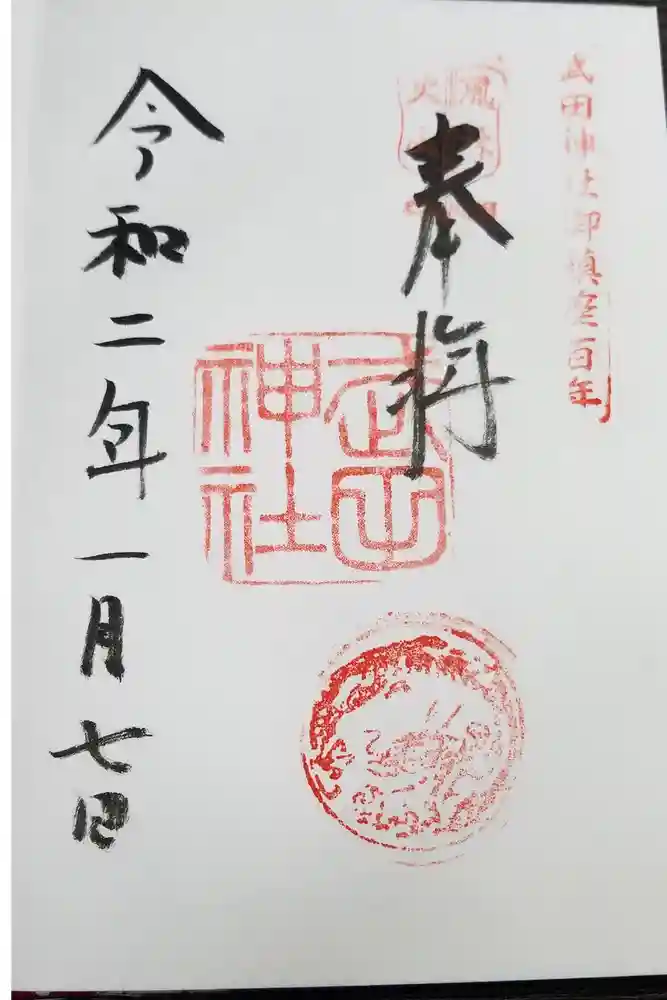 武田神社御鎮座百年
奉拝
武田神社
令和二年一月七日